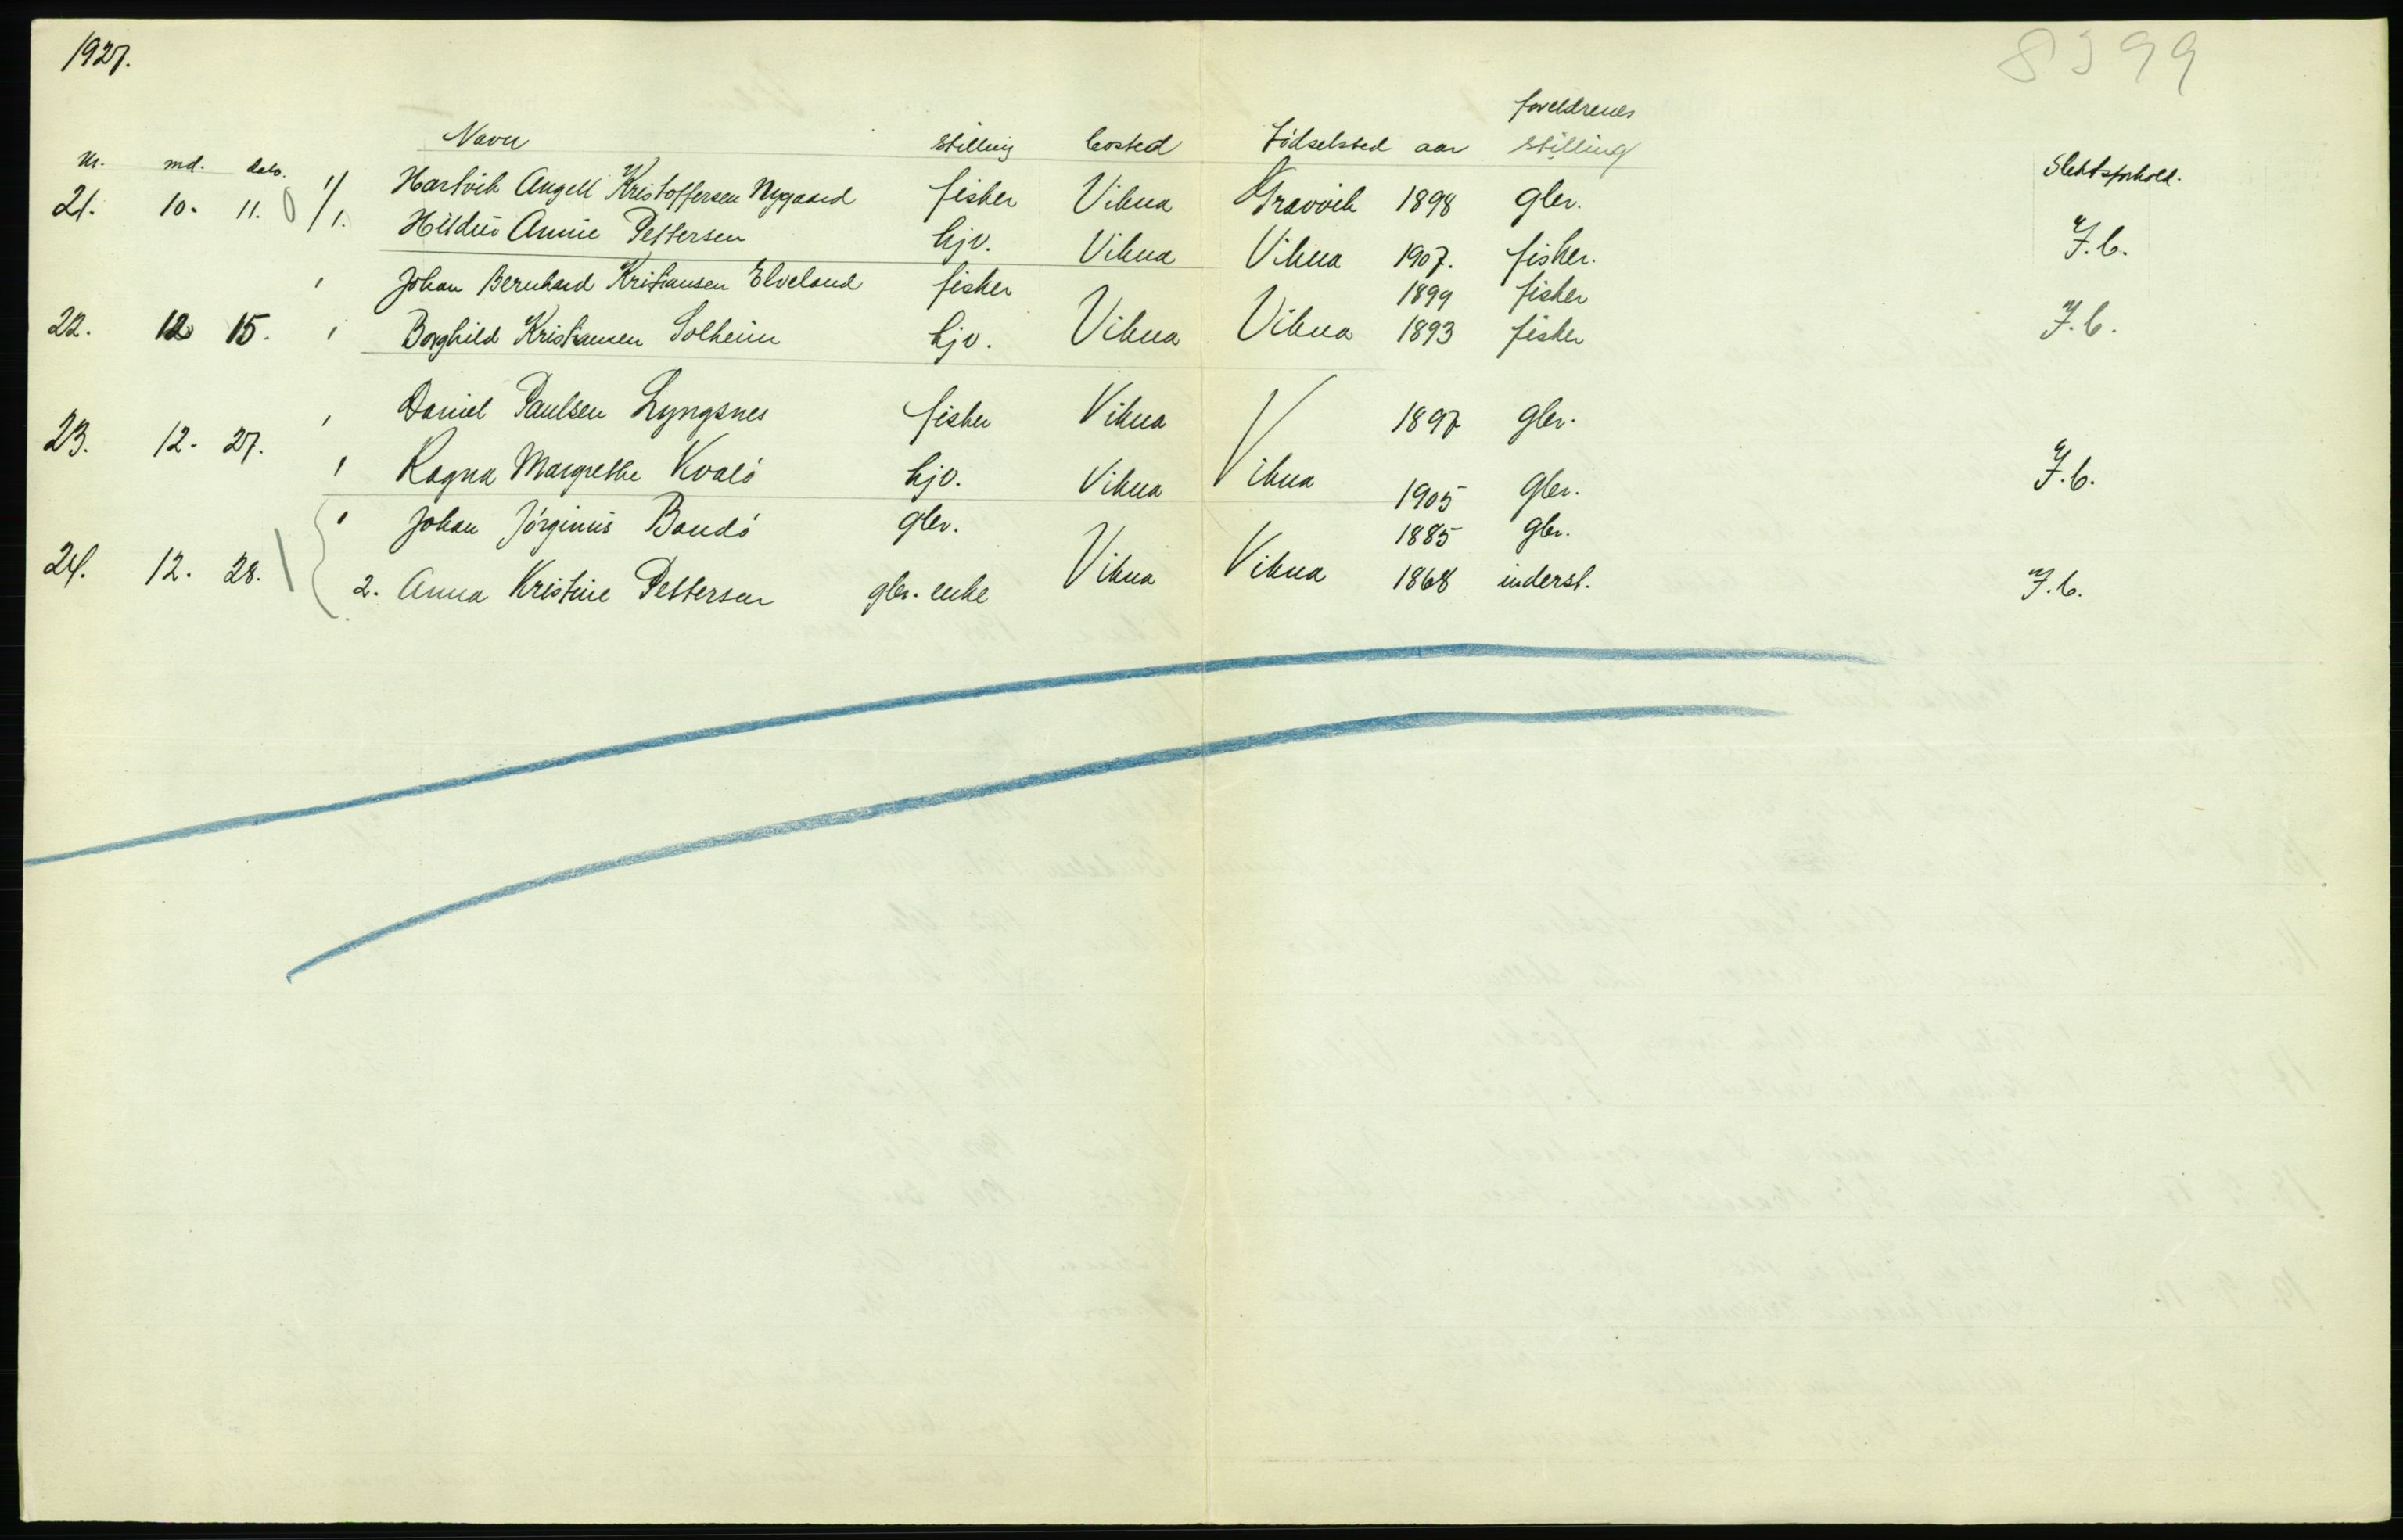 1927.
8399
Nr. md. dato. Navn stilling bosted Födselsted aar foreldrenes stilling Slektsforhold.
21. 10. 11. 1/ Hartvik Angell Kristoffersen Nygaard fisker Vikna Gravvik 1898 gbr.
/1. Hildur Annie Pettersen hjv. Vikna Vikna 1907. fisker. I.b.
1 Johan Bernhard Kristiansen Elveland fisker 1899 fisker
22. 12 15. 1 Borghild Kristiansen Solheim hjv. Vikna Vikna 1893 fisker I.b.
1 Daniel Paulsen Lyngsnes fisker Vikna 1897 gbr.
23. 12. 27. 1 Ragna Margrethe Kvalö hjv. Vikna Vikna 1905 gbr. I.b.
1 Johan Jörginus Bondö gbr. 1885 gbr.
24. 12. 28. 2. Anna Kristine Pettersen gbr. enke Vikna Vikna 1868 inderst. I.b.